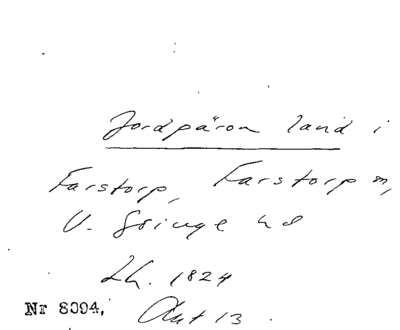 Jordpäron land i
Farstorp, Farstorp sn,
V. Göinge hd
Lh. 1824
Nr 8094, Akt 13.